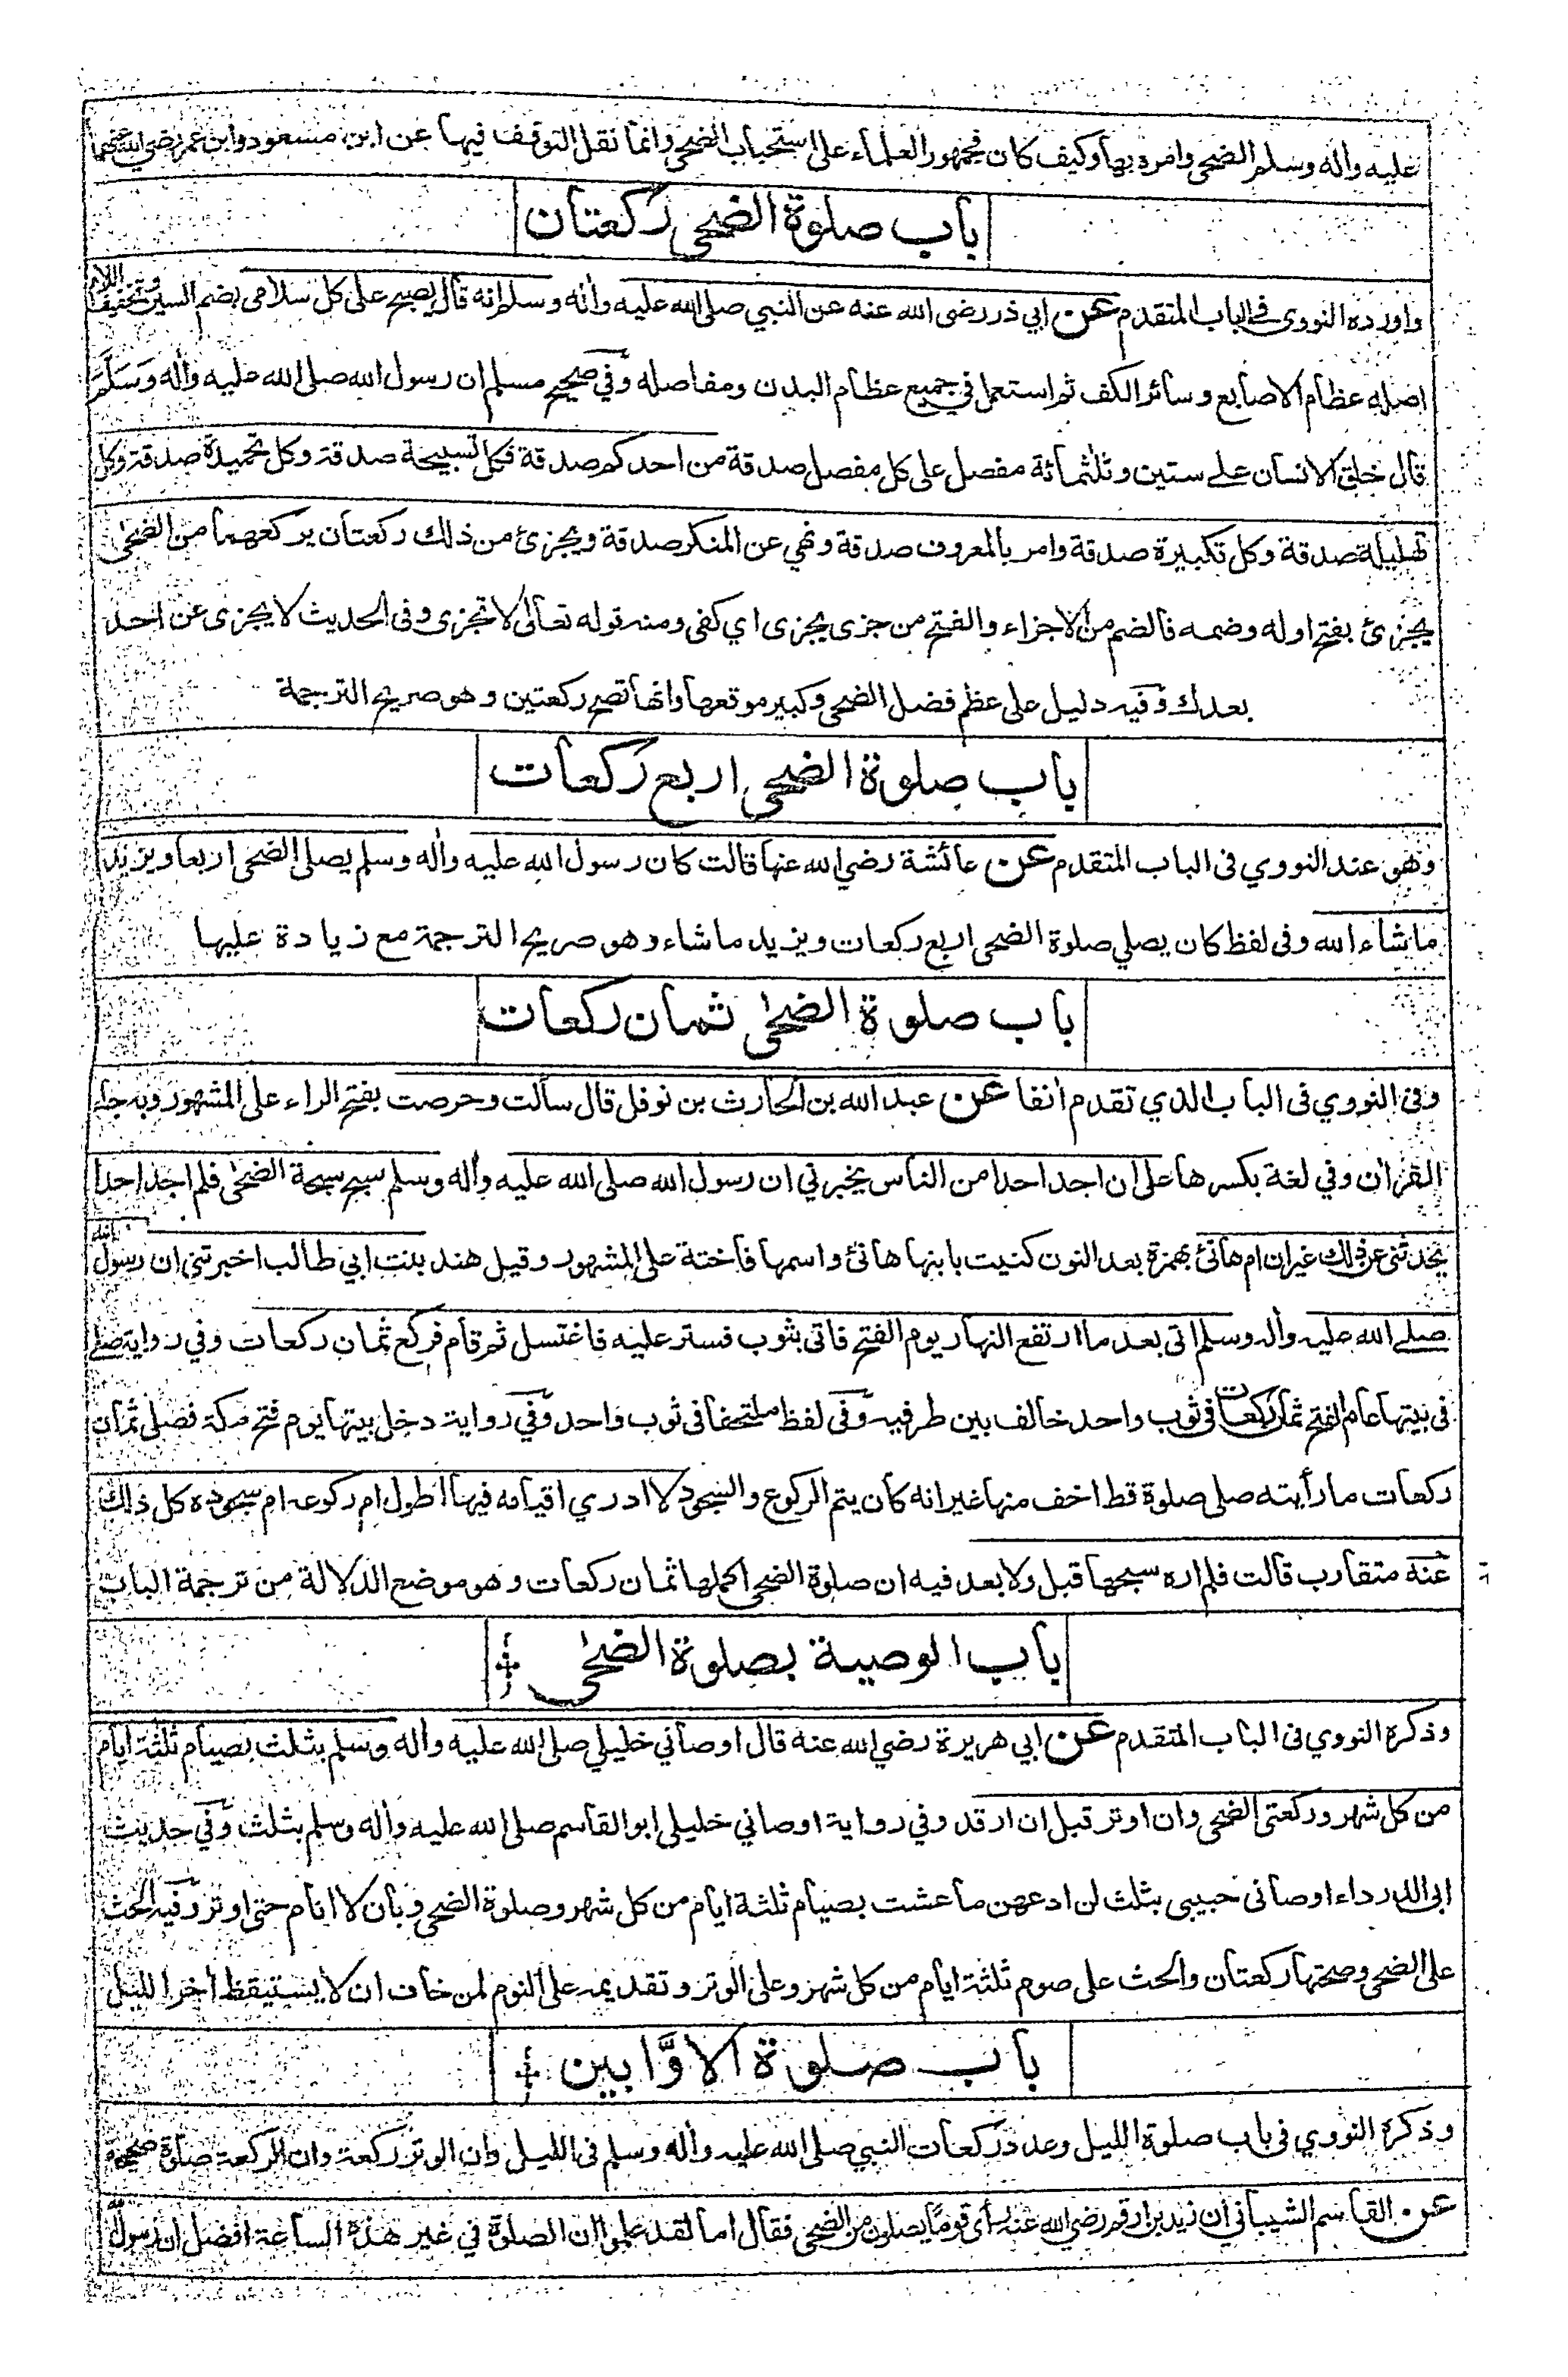 عليه واٰله وسلم الضحى وامره بها وكيف كان فجمهور العلماء على استحباب الضحى وانما نقل التوقف فيها عن ابن مسعود وابن عمر رضي الله عنهما
باب صلوة الضحى ركعتان
واورده النووى فى الباب المتقدم عن ابي ذر رضى الله عنه عن النبي صلى الله عليه واٰله وسلم انه قال يصبح على كل سلامى بضم السين وتخفيف اللام
اصله عظام الاصابع وسائر الكف ثم استعمل في جميع عظام البدن ومفاصله وفي صحيح مسلم ان رسول الله صلى الله عليه واٰله وَسَلَّمَ
قال خلق الانسان على ستين وثلثمائة مفصل على كل مفصل صدقة من احدكم صدقة فكل تسبيحة صدقة وكل تحميدة صدقة وكل
تهليلة صدقة وكل تكبيرة صدقة وامر بالمعروف صدقة ونهي عن المنكر صدقة ويجزئ من ذلك ركعتان يركعهما من الضحى
يجزئ بفتح اوله وضمه فالضم من الاجزاء والفتح من جزى يجزى اي كفى ومنه قوله تعالى لا تجزى وفى الحديث لا يجزى عن احد
بعدك وفيه دليل على عظم فضل الضحى وكبير موقعها وانها تصح ركعتين وهو صريح الترجمة
باب صلوة الضحى اربع ركعات
وهو عند النووي فى الباب المتقدم عن عائشة رضي الله عنها قالت كان رسول الله عليه واٰله وسلم يصلى الضحى اربعا ويزيد
ما شاء الله وفى لفظ كان يصلي صلوة الضحى اربع ركعات ويزيد ما شاء وهو صريح الترجمة مع زيادة عليها
باب صلوة الضحى ثمان ركعات
وفى النووي فى الباب الذي تقدم اٰنفا عن عبد الله بن الحارث بن نوفل قال سألت وحرصت بفتح الراء على المشهور وبه جاء
القراٰن وفي لغة بكسرها على ان اجد احدا من الناس يخبرني ان رسول الله صلى الله عليه واٰله وسلم سبح سبحة الضحى فلم اجد احدا
يحدثنى عن ذلك غير ان ام هانئ بهمزة بعد النون كنيت بابنها هانئ واسمها فاختة على المشهور وقيل هند بنت ابي طالب اخبرتنى ان رسول الله
صلى الله عليه واٰله وسلم اتى بعد ما ارتفع النهار يوم الفتح فاتى بثوب فستر عليه فاغتسل ثم قام فركع ثمان ركعات وفي رواية صلى
فى بيتها عام الفتح ثمان ركعات فى ثوب واحد خالف بين طرفيه وفى لفظ ملتحفا فى ثوب واحد وفي رواية دخل بيتها يوم فتح مكة فصلى ثمان
ركعات ما رأيته صلى صلوة قط اخف منها غير انه كان يتم الركوع والسجود لا ادري اقيامه فيها اطول ام ركوعه ام سجوده كل ذلك
عنه متقارب قالت فلم اره سبحها قبل ولا بعد فيه ان صلوة الضحى اكملها ثمان ركعات وهو موضع الدلالة من ترجمة الباب
باب الوصية بصلوة الضحى
وذكره النووي فى الباب المتقدم عن ابي هريرة رضي الله عنه قال اوصاني خليلي صلى الله عليه واٰله وسلم بثلث بصيام ثلثة ايام
من كل شهر وركعتى الضحى وان اوتر قبل ان ارقد وفي رواية اوصاني خليلى ابو القاسم صلى الله عليه واٰله وسلم بثلث وفي حديث
ابى الدرداء اوصانى حبيبى بثلث لن ادعهن ما عشت بصيام ثلثة ايام من كل شهر وصلوة الضحى وبان لا انام حتى اوتر وفيه الحث
على الضحى وصحتها ركعتان والحث على صوم ثلثة ايام من كل شهر وعلى الوتر وتقديمه على النوم لمن خاف ان لا يستيقظ اٰخر الليل
باب صلوة الاوَّابين
وذكره النووي فى باب صلوة الليل وعدد ركعات النبي صلى الله عليه واٰله وسلم فى الليل وان الوتر ركعة وان الركعة صلوة صحيحة
عن القاسم الشيبانى ان زيد بن ارقم رضي الله عنه رأى قوما يصلون من الضحى فقال اما لقد علموا ان الصلوة في غير هذه الساعة افضل ان رسول الله